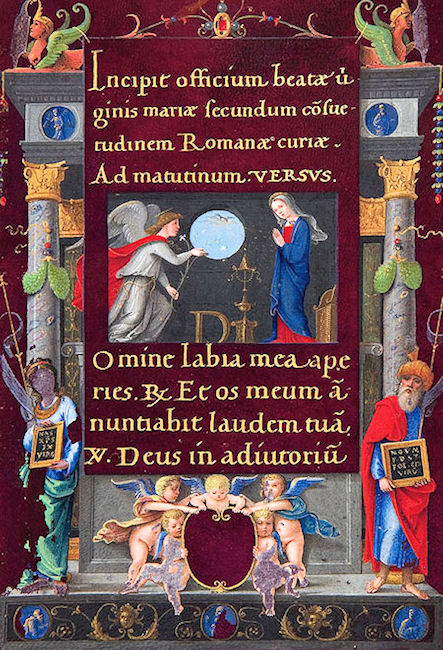 Incipit officium beatæ ũ
ginis mariæ secundum cõsue-
tudinem Romanæ curiæ.
Ad matutinum. VERSUS.
DOmine labia mea ape
ries. ℟. Et os meum ã
nuntiabit laudem tuã,
℣. Deus in adiutoriũ
NOVM